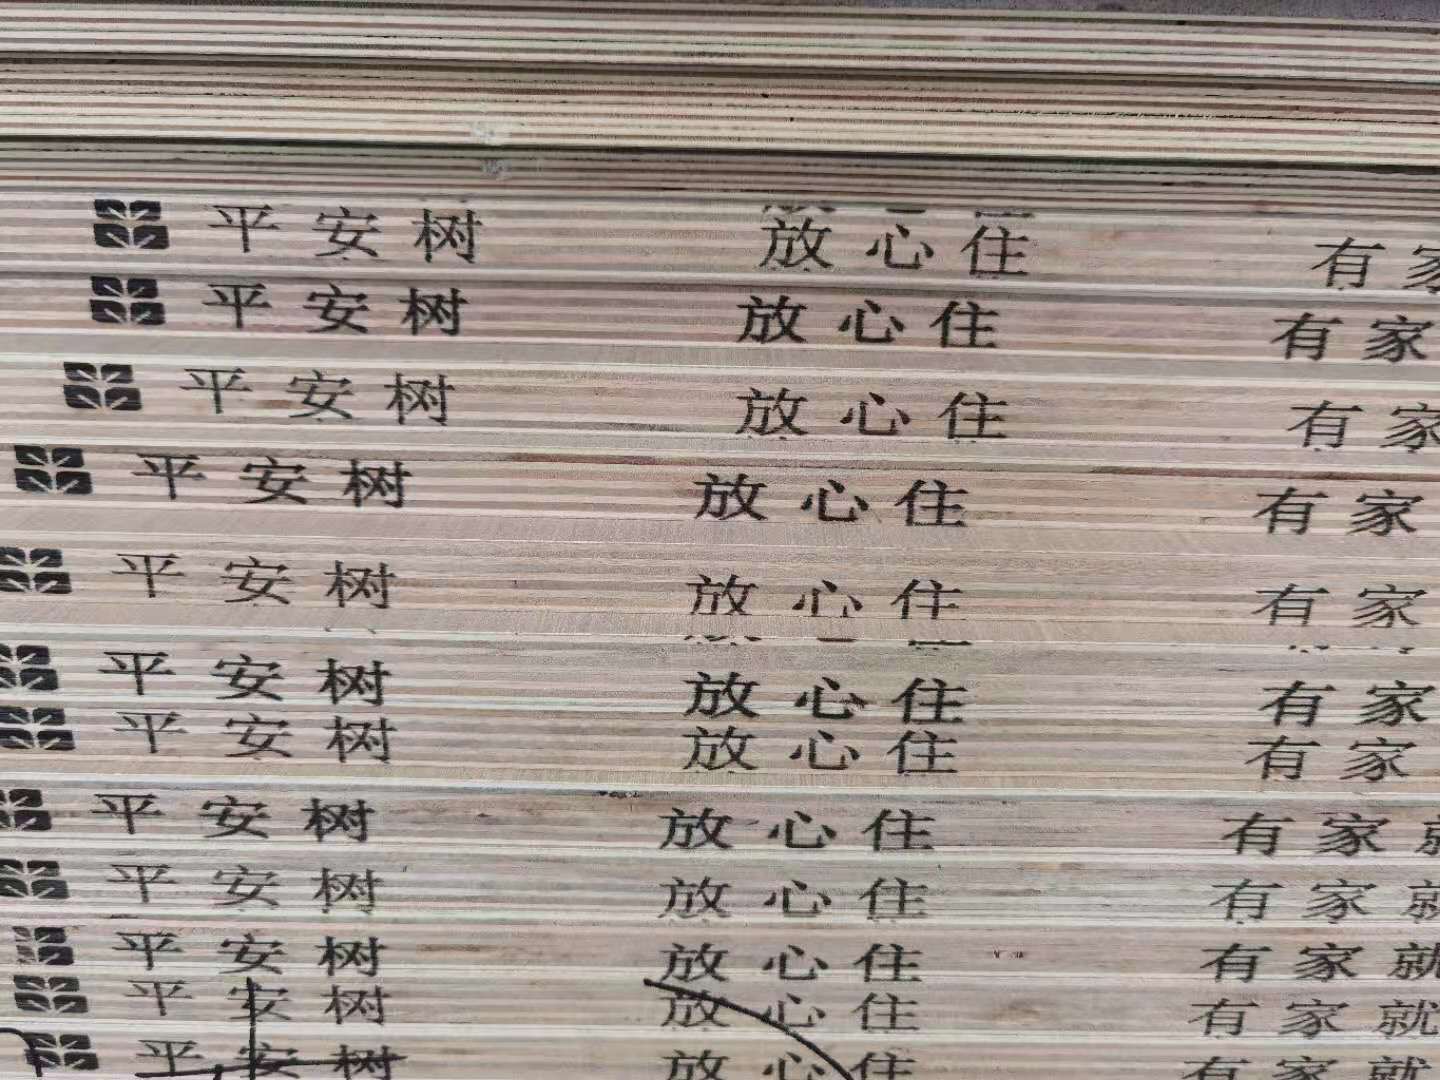 平安树 放心住 有家
平安树 放心住 有家
平安树 放心住 有家
平安树 放心住 有家
平安树 放心住 有家
平安树 放心住 有家
平安树 放心住 有家
平安树 放心住 有家就
平安树 放心住 有家就
平安树 放心住 有家就
平安树 放心住 有家就
平安树 放心住 有家就